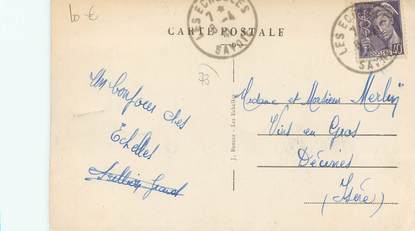 10 €
LES ECHELLES
7 * -4
SAVOIE
LES ECHELLES
SAVOIE
CARTE POSTALE
73
40
Un bonjour des
Echelles
Madame et Monsieur Merlin
Vins en Gros
Décines
(Isère)